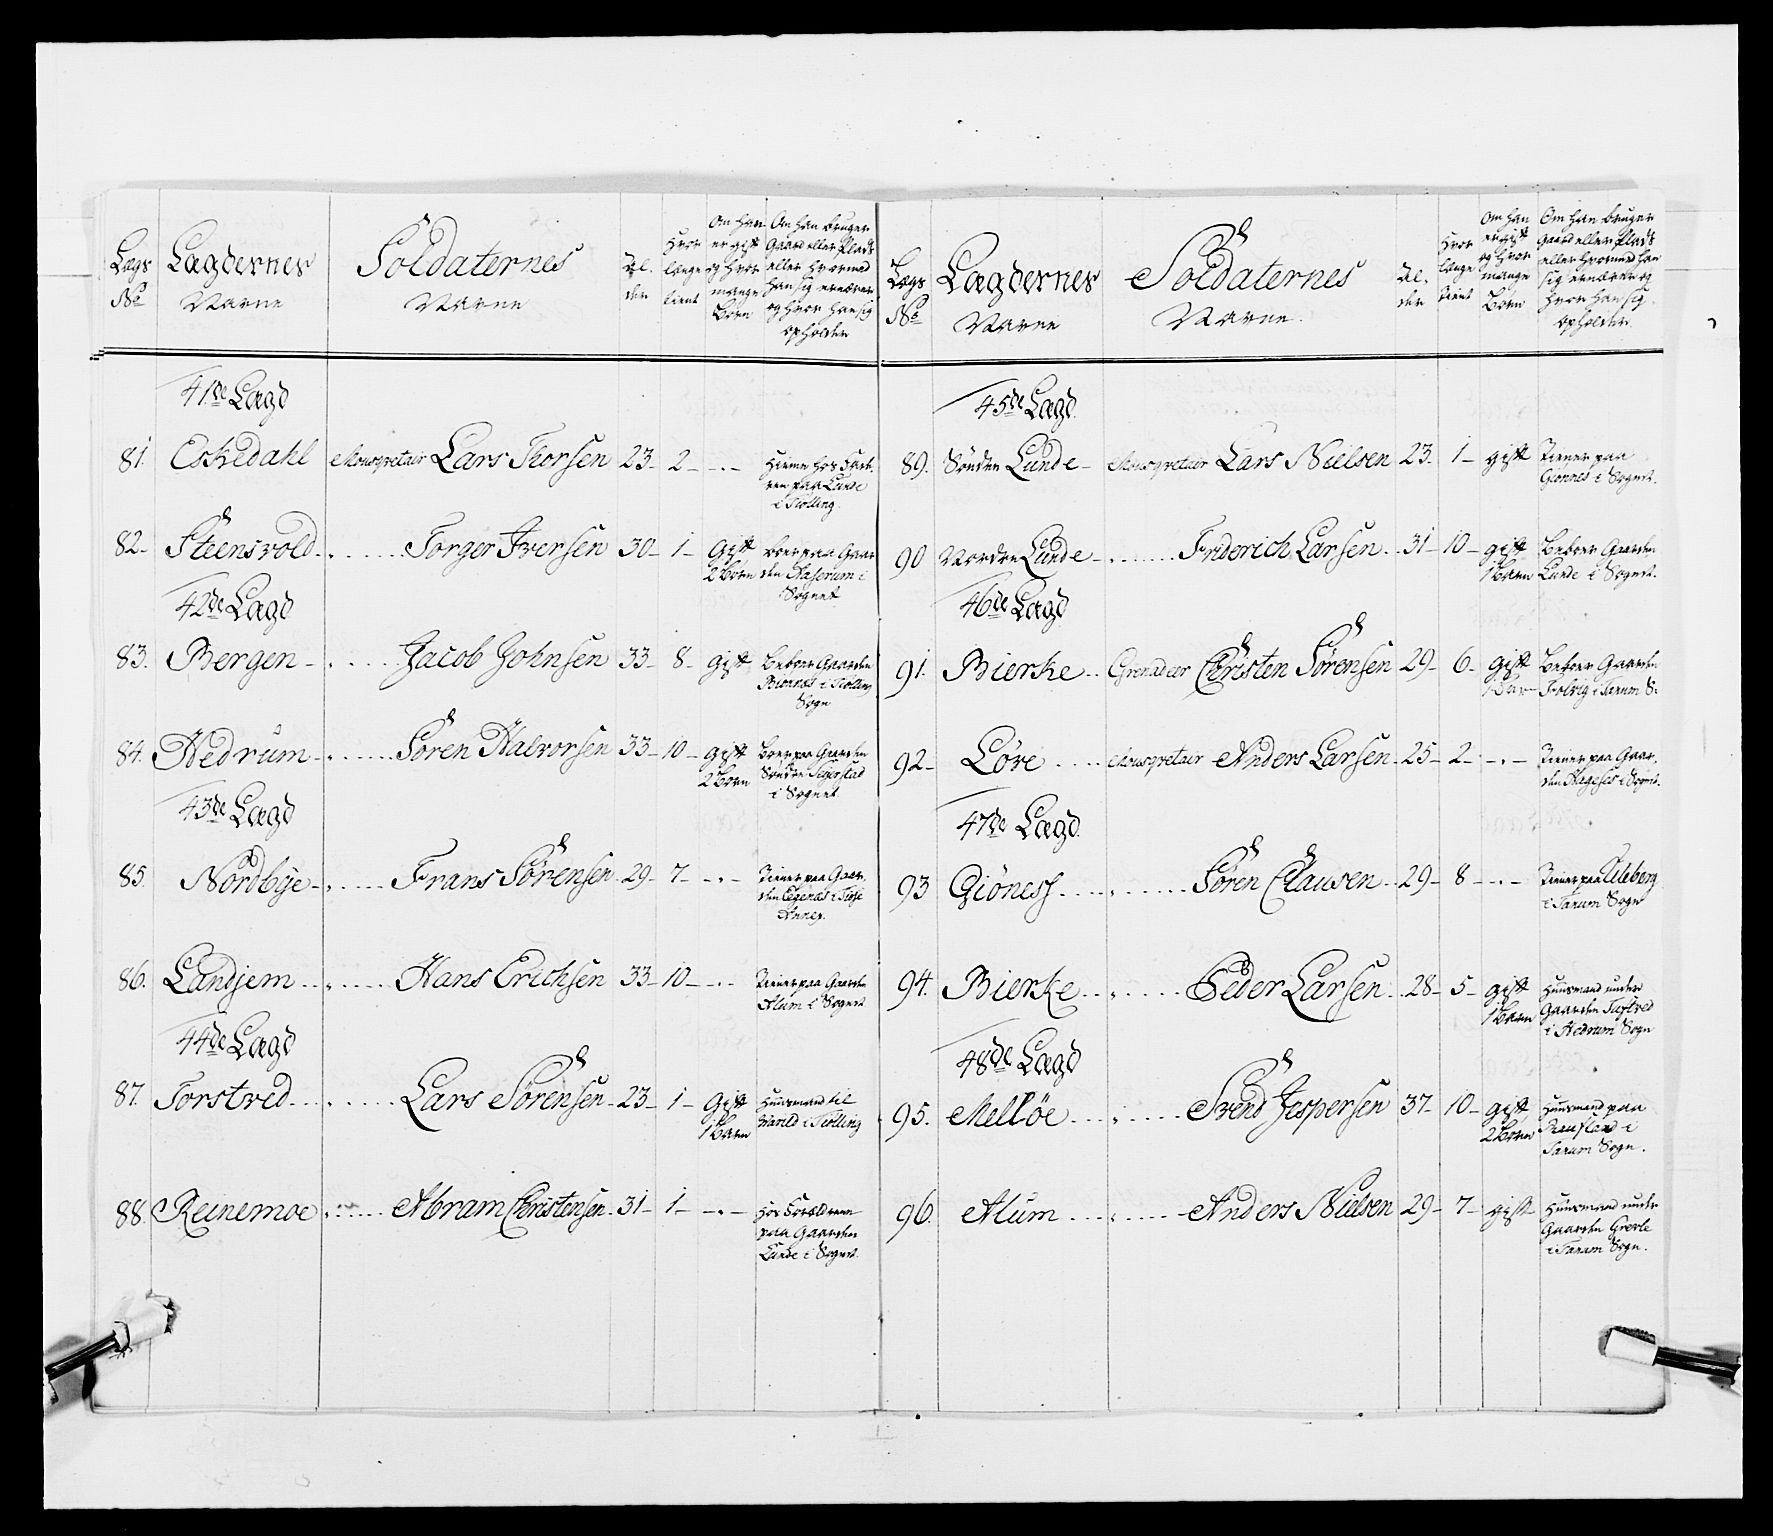 Lægs No
Lægdernes Navne
Soldaternes Navne
Al. der
Hvor længe tient
Om han er gift og hvor mange Børn
Om han bruger Gaard eller Plads eller hvormed han sig ernærer og hvor han sig opholder
41de Lægd
81. Eskedahl Mousqvetair Lars Thorsen 23 - 2 - - . - Hiemme hos
paa Lunde
i Tiølling
82 - Steensvold - . . . . . . Torger Iversen 30 - 1 - Gift 2 Børn boer paa Gaar
den i
Sognet
42de Lægd
83. Bergen - . . . . . Jacob Johnsen 33 - 8 - gift Beboer Gaarden
i Tiølling
Sogn
84. Hedrum - . . . . . . Søren Halvorsen 33 - 10 - gift 2 Børn Boer paa Gaarden
Søndre
i Sognet
43de Lægd
85. Nordbye - . . . . . Frans Sørensen 29 - 7 - - . - Tiener paa Gaar
den i
Annex.
86. Landjem . . . . . . . Hans Erichsen 33 - 10 - - . - Tiener paa Gaarden
Alum i Sognet
44de Lægd
87. Torstved . . . . . . Lars Sørensen - 23 - 1 - Gift 1 Barn Huusmand til
i Tiølling
88. Reinemoe . . . . . . Abram Christensen 31 - 1 - - . - hos Forældrene
paa Gaarden
Lunde i Sognet.
Lægs No
Lægdernes Navne
Soldaternes Navne.
Al. der
Hvor længe tient
Om han er gift og hvor mange Børn
Om han bruger Gaard eller Plads eller hvormed han sig ernærer og hvor han sig opholder.
45de Lægd.
89. Sønden Lunde - Mousqvetair Lars Nielsen 23 - 1 - gift Tiener paa
Giønnes i Sognet.
90 Norden Lunde - . . . . . . Friderich Larsen . 31 - 10 - gift 1 Barn Beboer Gaarden
Lunde i Sognet.
46de Lægd
91. Bierke . . Grenadeer Christen Sørensen 29 - 6 - gift Beboer Gaarden
i Tanum S:
92 - Løve . . . . Mousqvetair Anders Larsen . 25 - 2 - - . - Tiener paa Gaar.
den i Sognet.
47de Lægd
93 Giøness . . . . . . . . Søren Clausen . . 29 - 8 - - . - Tiener paa Uleberg
i Tanum Sogn
94. Bierke . . . . . . . Peder Larsen . 28 - 5 - gift 1 Barn Huusmand under
Gaarden
i Hedrum Sogn
48de Lægd
95. Melløe . . . . . . . Svend Jespersen 37 - 10 - gift 2 Børn Huusmand paa
i
Tanum Sogn.
96. Alum . . . . . . . . Anders Nielsen 29 - 7 - gift Huusmand under
Gaarden Grevle
i Tanum Sogn.